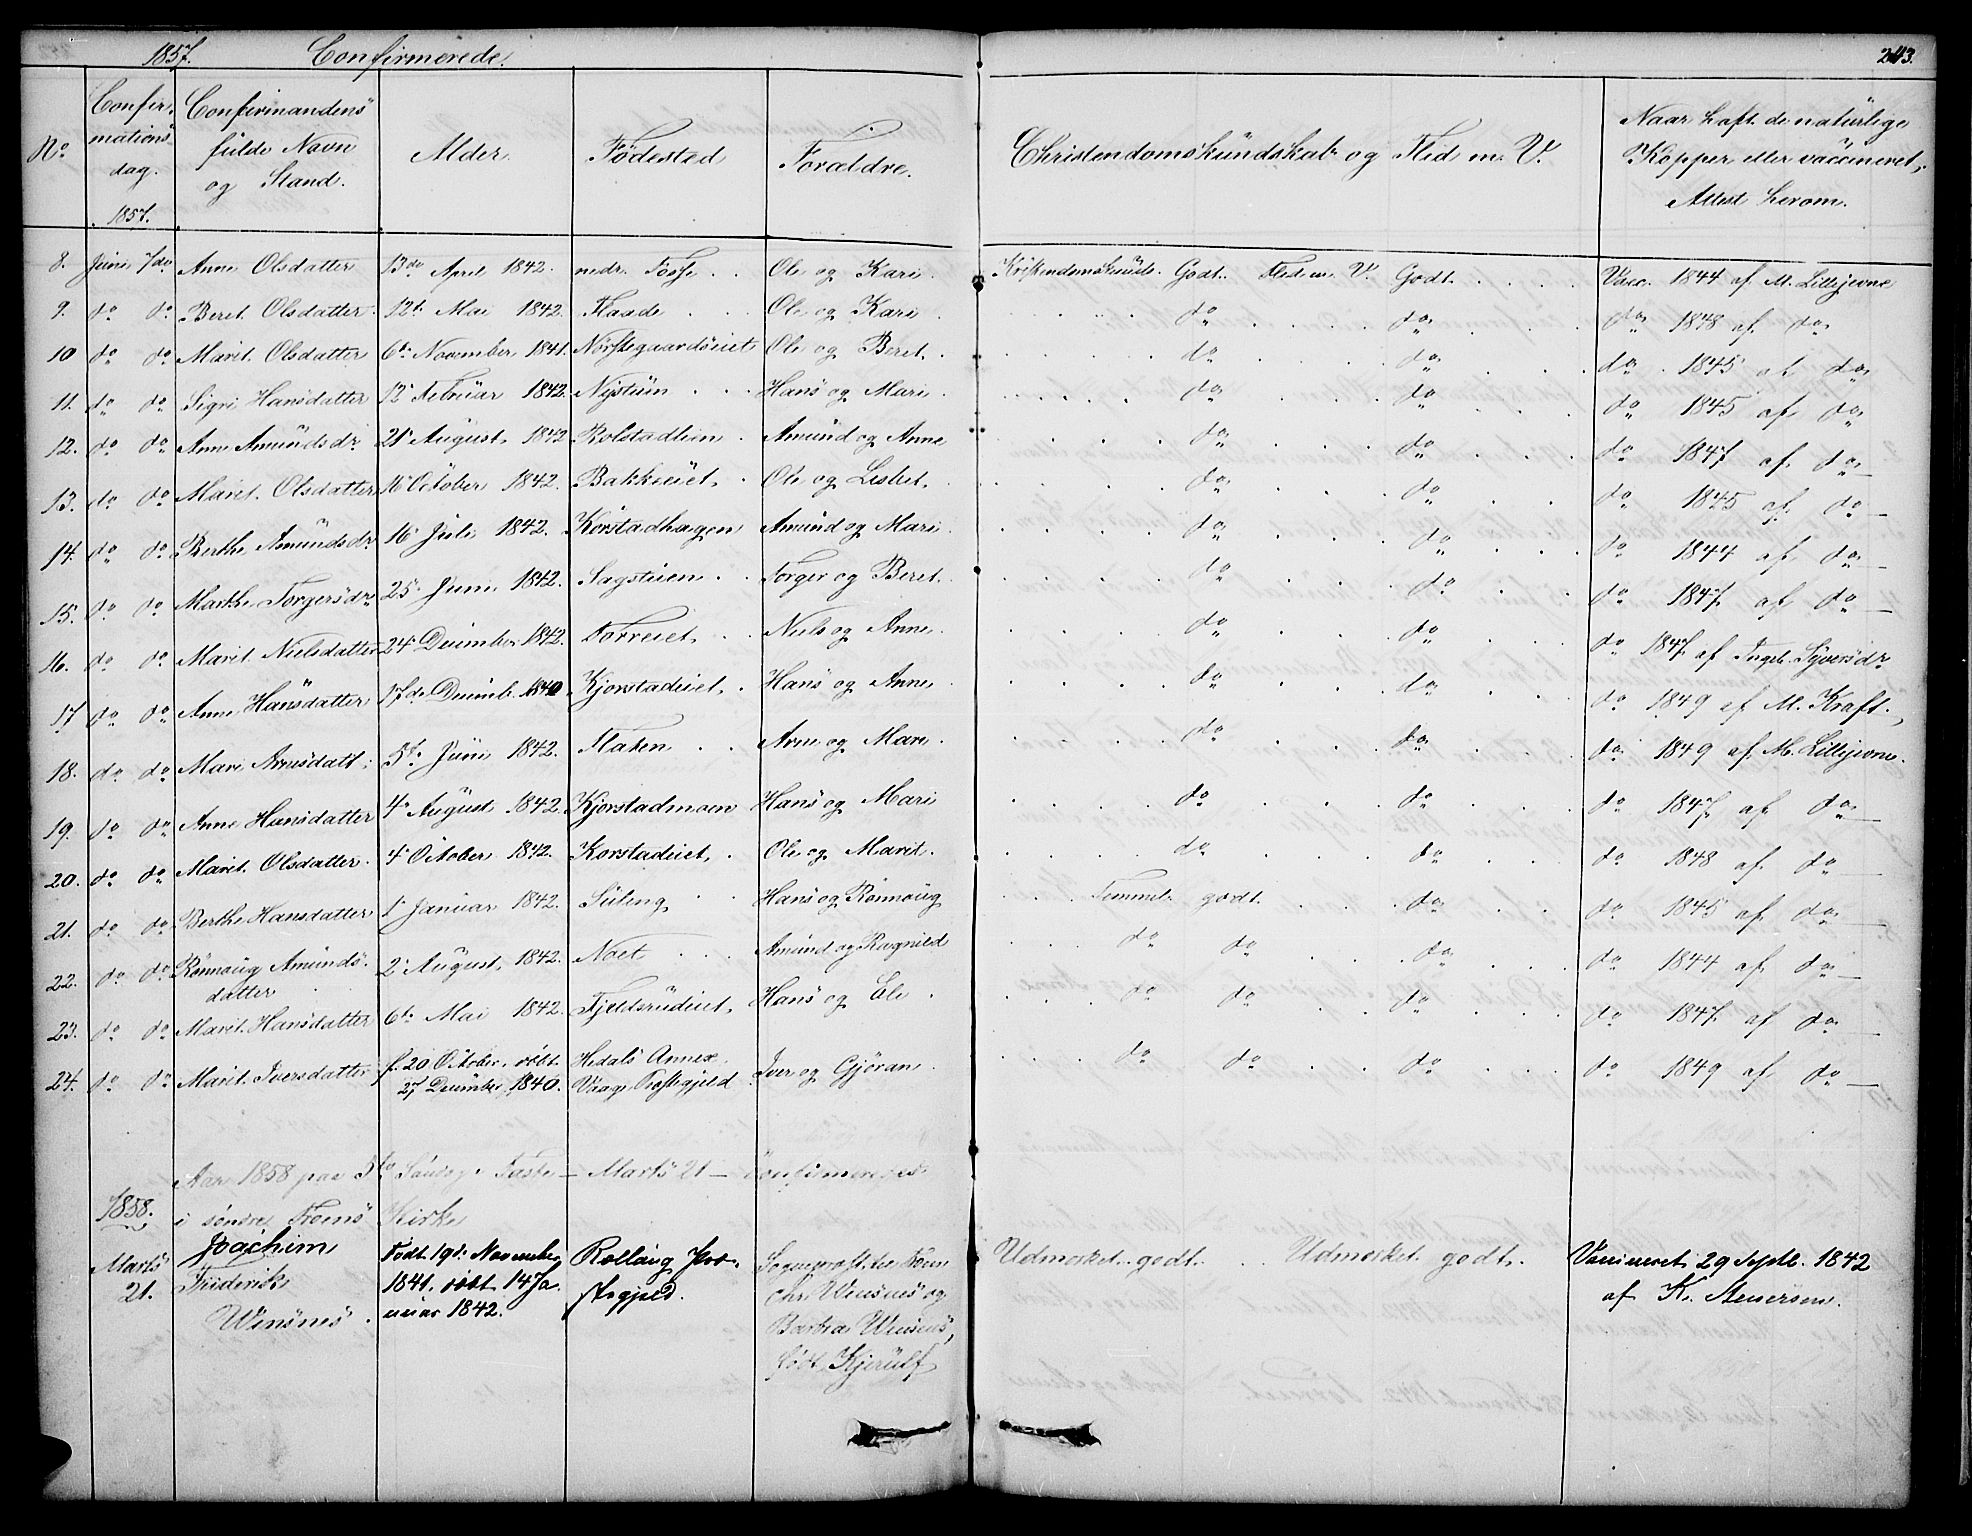 1857. Confirmerede. 243.
No. Confirmationsdag. 1857. Confirmandens fulde Navn og Stand. Alder. Fødested Forældre. Christendomskundskab og Flid m. V. Naar haft de naturlige Kopper eller vaccineret, Attest herom.
8. Juni 7de Anne Olsdatter 13de April 1842. nedr. Fosse Ole og Kari. Kristendomskunds. Godt. Flid m. V. Godt. Vacc. 1844 af M. Lillijevne
9. do do Beret Olsdatter 12te Mai 1842. Flaade Ole og Kari do do do 1848 af do
10 do do Marit Olsdatter 6te November 1841. Norstegaardseiet Ole og Beret. do do do 1845 af do
11. do do Sigri Hansdatter 12 Februar 1842. Nystuen Hans og Mari. do do do 1845 af do
12. do do Anne Amundsdr 21 August 1842 Bolstadlien Amund og Anne do do do 1847 af do
13. do do Marit Olsdatter 16 October 1842. Bakkeeiet Ole og Lisbet. do do do 1845 af do
14. do do Berthe Amundsdr 16 Juli 1842. Korstadhagen Amund og Mari do do do 1844 af do
15. do do Marthe Torgersdr 25 Juni 1842. Sagstuen Torger og Beret. do do do 1847 af do
16. do do Marit Nielsdatter 24 December 1842. Forreiet Niels og Anne. do do do 1847 af Ingeb. Syversdr
17 do do Anne Hansdatter 17de Decemb. 1840 Kjorstadeiet. Hans og Anne do do do 1849 af M. Kraft.
18. do do Mari Arnesdatt. 5te Juni 1842. Flaten Arne og Mari. do do do 1849 af M. Lillijevne.
19. do do Anne Hansdatter 4 August 1842. Kjorstadmoen Hans og Mari do do do 1847 af do
20. do do Marit Olsdatter 4 October 1842. Korstadeiet. Ole og Marit. do do do 1848 af do
21. do do Berthe Hansdatter 1 Januar 1842. Suleng Hans og Rønnaug Temmel. godt. do do 1845 af do
22. do do Rønnaug Amunds- 2 August 1842. Noet Amund og Ragnild do do do do 1844 af do
datter
23. do do Marit Hansdatter 6te Mai 1842. Fjeldsrudeiet Hans og Eli do do do do 1847 af do
24. do do Marit Iversdatter f. 20 October, døbt Hedals Annex Iver og Gjøran do do do do 1849 af do
27 December 1840. Vaage Præstegjeld
Aar 1858 paa 5te Søndag i Faste – Marts 21 – confirmeredes
1858. i søndre Froens Kirke
Marts 21. Joachim Frederik Winsnes.
Født 19de November 1841, døbt 14 Januar 1842.
Rollaug Præstegjeld.
Chr. Winsnes og
Barbra Winsnes,
født Kjerulf
Udmærket godt. Udmærket godt.
Vaccineret 29 Septb. 1842
af K.